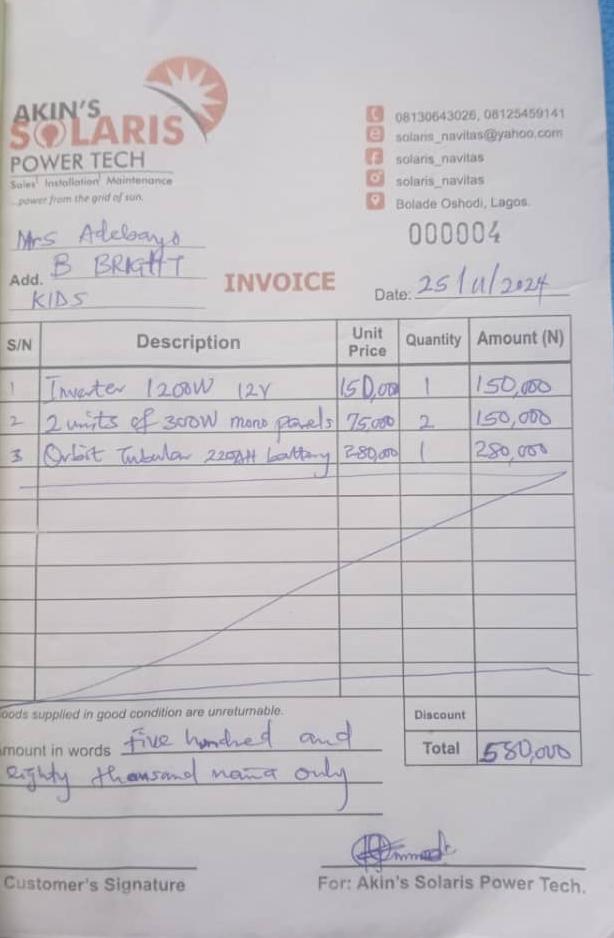 AKIN'S
SOLARIS
POWER TECH
Sales Installation Maintenance
...power from the grid of sun.
08130643026, 08125459141
solaris_navitas@yahoo.com
solaris_navitas
solaris_navitas
Bolade Oshodi, Lagos.
000004
Mrs Adebayo
Add. B BRIGHT
KIDS
INVOICE
Date: 25/11/2024
S/N Description Unit Price Quantity Amount (N)
1 Inverter 1200W 12V 150,000 1 150,000
2 2 units of 300W mono panels 75000 2 150,000
3 Orbit Tubular 220AH battery 280,000 1 280,000
oods supplied in good condition are unreturnable.
Discount
mount in words five hundred and
eighty thousand naira only
Total 580,000
Customer's Signature
For: Akin's Solaris Power Tech.